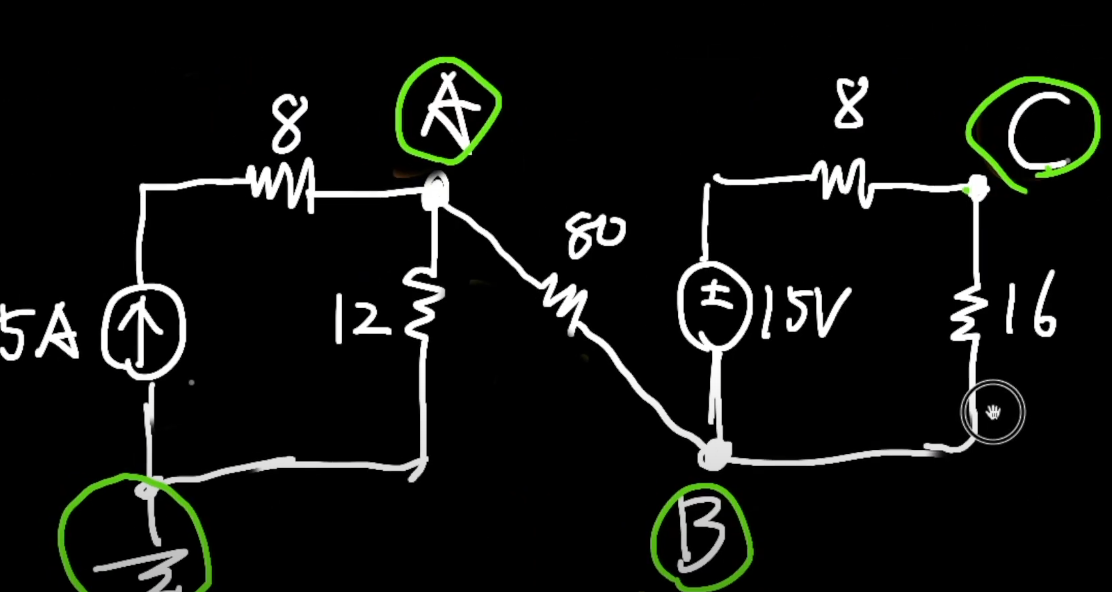 8
A
8
C
80
5A
12
±
15V
16
B